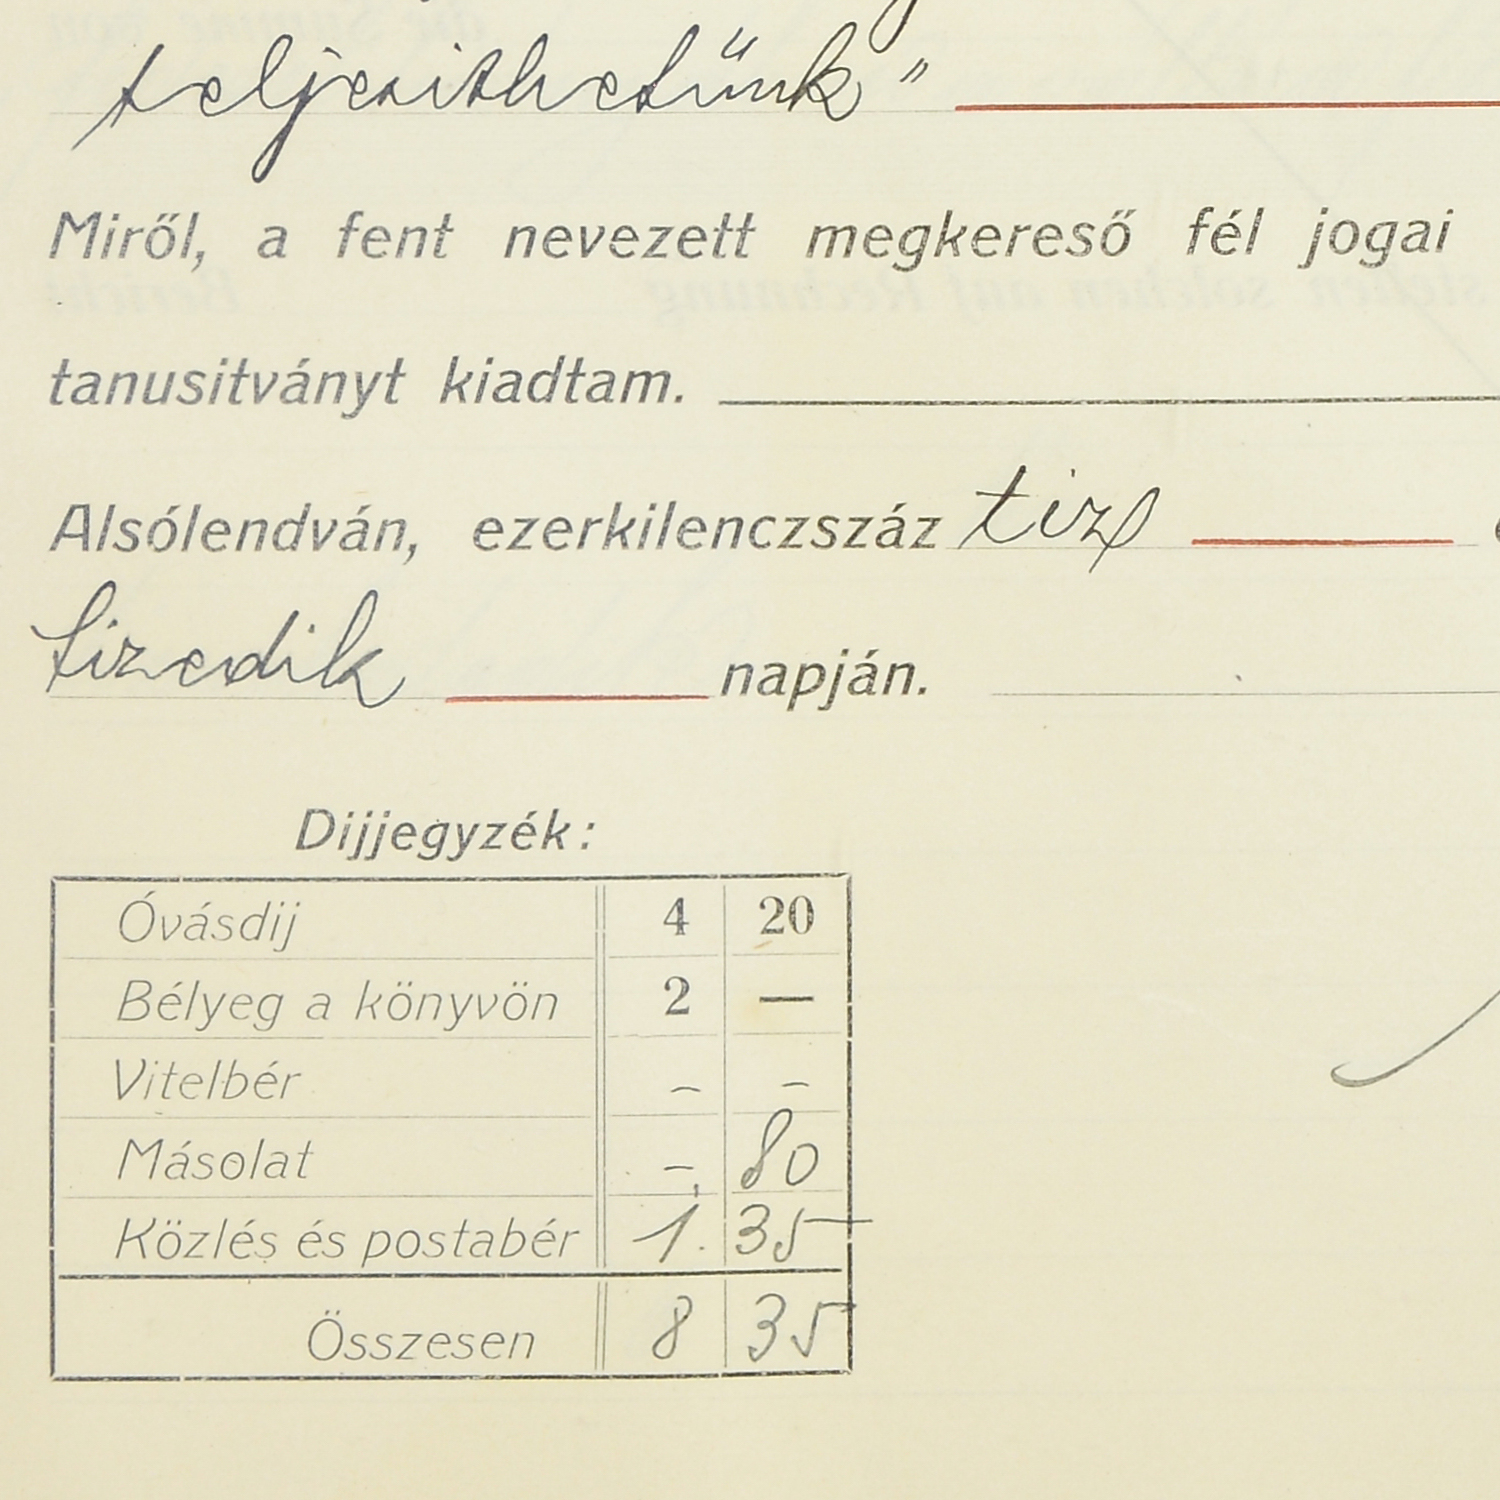 teljesithetünk"
Miről, a fent nevezett megkereső fél jogai
tanusitványt kiadtam.
Alsólendván, ezerkilenczszáz tiz
tizedik napján.
Dijjegyzék:
Óvásdij 4 20
Bélyeg a könyvön 2 —
Vitelbér – –
Másolat – 80
Közlés és postabér 1. 35
Összesen 8 35